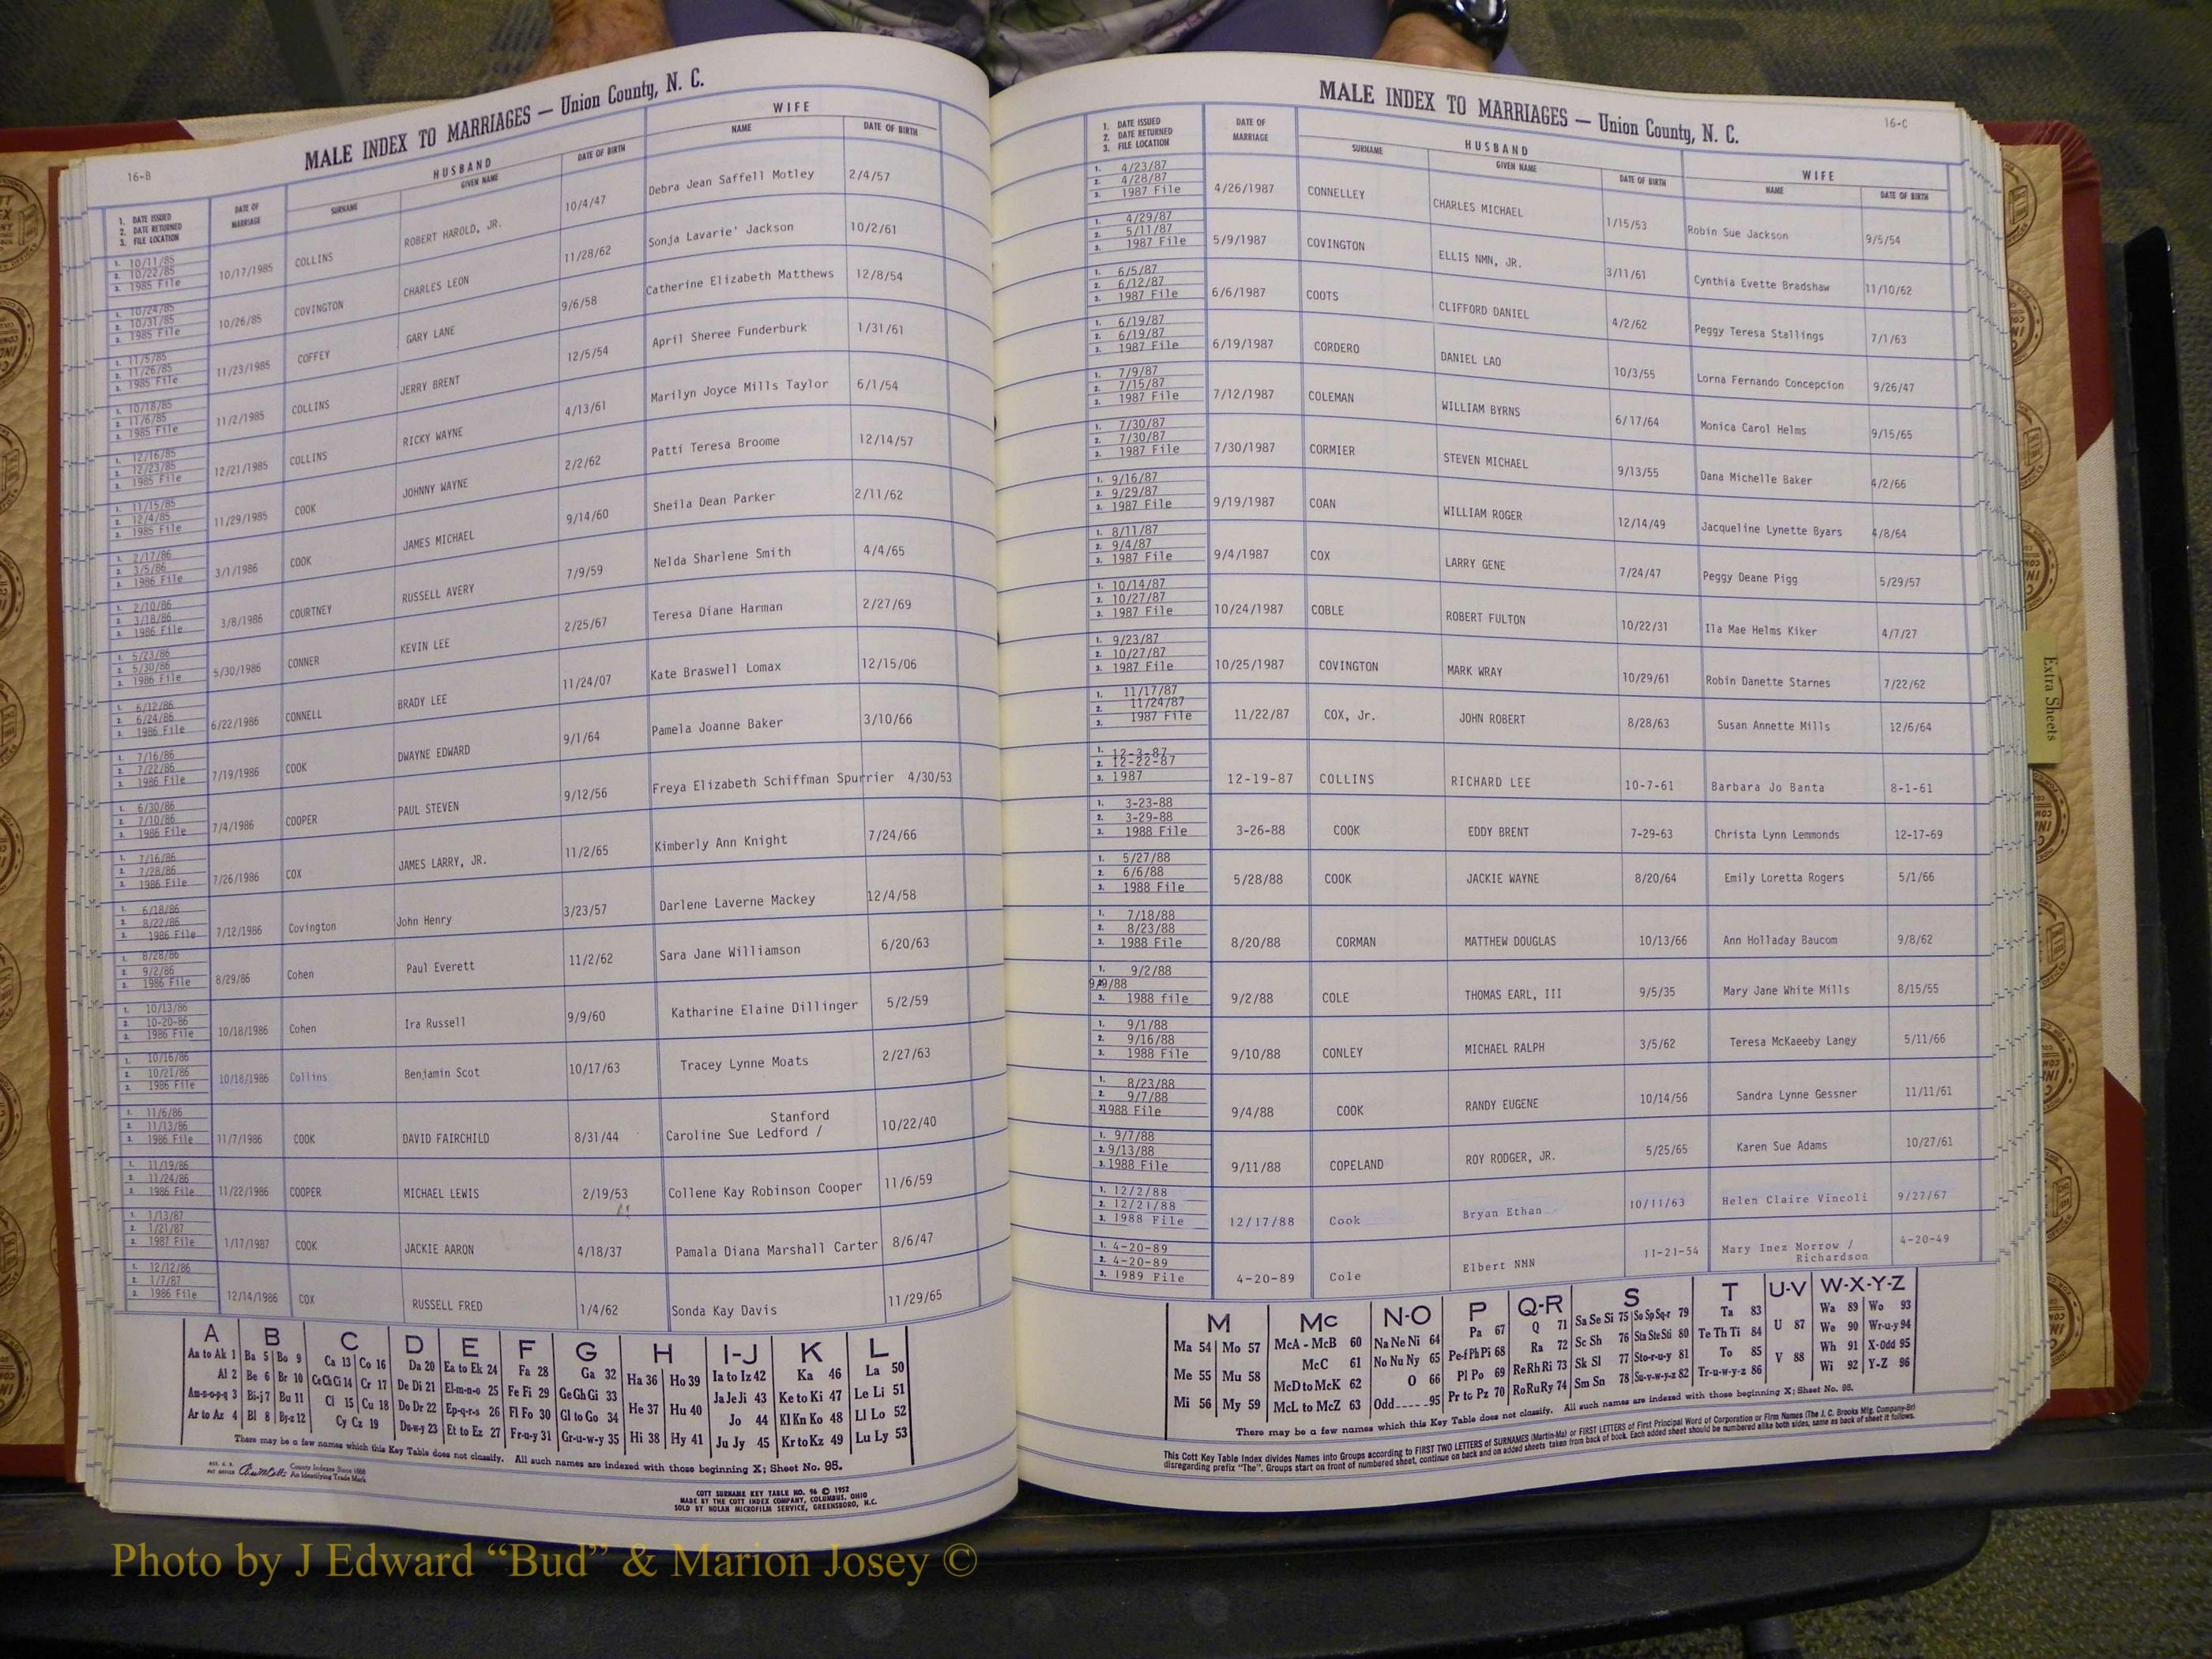 16-B
MALE INDEX TO MARRIAGES — Union County, N. C.
HUSBAND WIFE
1. DATE ISSUED 2. DATE RETURNED 3. FILE LOCATION DATE OF MARRIAGE SURNAME GIVEN NAME DATE OF BIRTH NAME DATE OF BIRTH
1. 10/11/85 2. 10/22/85 3. 1985 File 10/17/1985 COLLINS ROBERT HAROLD, JR. 10/4/47 Debra Jean Saffell Motley 2/4/57
1. 10/24/85 2. 10/31/85 3. 1985 File 10/26/85 COVINGTON CHARLES LEON 11/28/62 Sonja Lavarie' Jackson 10/2/61
1. 11/5/85 2. 11/26/85 3. 1985 File 11/23/1985 COFFEY GARY LANE 9/6/58 Catherine Elizabeth Matthews 12/8/54
1. 10/18/85 2. 11/6/85 3. 1985 File 11/2/1985 COLLINS JERRY BRENT 12/5/54 April Sheree Funderburk 1/31/61
1. 12/16/85 2. 12/23/85 3. 1985 File 12/21/1985 COLLINS RICKY WAYNE 4/13/61 Marilyn Joyce Mills Taylor 6/1/54
1. 11/15/85 2. 12/4/85 3. 1985 File 11/29/1985 COOK JOHNNY WAYNE 2/2/62 Patti Teresa Broome 12/14/57
1. 2/17/86 2. 3/5/86 3. 1986 File 3/1/1986 COOK JAMES MICHAEL 9/14/60 Sheila Dean Parker 2/11/62
1. 2/10/86 2. 3/18/86 3. 1986 File 3/8/1986 COURTNEY RUSSELL AVERY 7/9/59 Nelda Sharlene Smith 4/4/65
1. 5/23/86 2. 5/30/86 3. 1986 File 5/30/1986 CONNER KEVIN LEE 2/25/67 Teresa Diane Harman 2/27/69
1. 6/12/86 2. 6/24/86 3. 1986 File 6/22/1986 CONNELL BRADY LEE 11/24/07 Kate Braswell Lomax 12/15/06
1. 7/16/86 2. 7/22/86 3. 1986 File 7/19/1986 COOK DWAYNE EDWARD 9/1/64 Pamela Joanne Baker 3/10/66
1. 6/30/86 2. 7/10/86 3. 1986 File 7/4/1986 COOPER PAUL STEVEN 9/12/56 Freya Elizabeth Schiffman Spurrier 4/30/53
1. 7/16/86 2. 7/28/86 3. 1986 File 7/26/1986 COX JAMES LARRY, JR. 11/2/65 Kimberly Ann Knight 7/24/66
1. 6/18/86 2. 8/22/86 3. 1986 File 7/12/1986 Covington John Henry 3/23/57 Darlene Laverne Mackey 12/4/58
1. 8/28/86 2. 9/2/86 3. 1986 File 8/29/86 Cohen Paul Everett 11/2/62 Sara Jane Williamson 6/20/63
1. 10/13/86 2. 10-20-86 3. 1986 File 10/18/1986 Cohen Ira Russell 9/9/60 Katharine Elaine Dillinger 5/2/59
1. 10/16/86 2. 10/21/86 3. 1986 File 10/18/1986 Collins Benjamin Scot 10/17/63 Tracey Lynne Moats 2/27/63
1. 11/6/86 2. 11/13/86 3. 1986 File 11/7/1986 COOK DAVID FAIRCHILD 8/31/44 Caroline Sue Ledford / Stanford 10/22/40
1. 11/19/86 2. 11/24/86 3. 1986 File 11/22/1986 COOPER MICHAEL LEWIS 2/19/53 Collene Kay Robinson Cooper 11/6/59
1. 1/13/87 2. 1/21/87 3. 1987 File 1/17/1987 COOK JACKIE AARON 4/18/37 Pamala Diana Marshall Carter 8/6/47
1. 12/12/86 2. 1/7/87 3. 1986 File 12/14/1986 COX RUSSELL FRED 1/4/62 Sonda Kay Davis 11/29/65
A B C D E F G H I-J K L
Aa to Ak 1 Ba 5 Bo 9 Ca 13 Co 16 Da 20 Ea to Ek 24 Fa 28 Ga 32 Ha 36 Ho 39 Ia to Iz 42 Ka 46 La 50
Al 2 Be 6 Br 10 Ce Ch Ci 14 Cr 17 De Di 21 El-m-n-o 25 Fe Fi 29 Ge Gh Gi 33 Ja Je Ji 43 Ke to Ki 47 Le Li 51
Am-n-o-p-q 3 Bi-j 7 Bu 11 Cl 15 Cu 18 Do Dr 22 Ep-q-r-s 26 Fl Fo 30 Gl to Go 34 He 37 Hu 40 Jo 44 Kl Kn Ko 48 Ll Lo 52
Ar to Az 4 Bl 8 By-z 12 Cy Cz 19 Du-w-y 23 Et to Ez 27 Fr-u-y 31 Gr-u-w-y 35 Hi 38 Hy 41 Ju Jy 45 Kr to Kz 49 Lu Ly 53
There may be a few names which this Key Table does not classify. All such names are indexed with those beginning X; Sheet No. 95.
County Indexes Since 1888
An Identifying Trade Mark
COTT SURNAME KEY TABLE NO. 96 © 1952
MADE BY THE COTT INDEX COMPANY, COLUMBUS, OHIO
SOLD BY NOLAN MICROFILM SERVICE, GREENSBORO, N.C.
MALE INDEX TO MARRIAGES — Union County, N. C.
16-C
HUSBAND WIFE
1. DATE ISSUED 2. DATE RETURNED 3. FILE LOCATION DATE OF MARRIAGE SURNAME GIVEN NAME DATE OF BIRTH NAME DATE OF BIRTH
1. 4/23/87 2. 4/28/87 3. 1987 File 4/26/1987 CONNELLEY CHARLES MICHAEL 1/15/53 Robin Sue Jackson 9/5/54
1. 4/29/87 2. 5/11/87 3. 1987 File 5/9/1987 COVINGTON ELLIS NMN, JR. 3/11/61 Cynthia Evette Bradshaw 11/10/62
1. 6/5/87 2. 6/12/87 3. 1987 File 6/6/1987 COOTS CLIFFORD DANIEL 4/2/62 Peggy Teresa Stallings 7/1/63
1. 6/19/87 2. 6/19/87 3. 1987 File 6/19/1987 CORDERO DANIEL LAO 10/3/55 Lorna Fernando Concepcion 9/26/47
1. 7/9/87 2. 7/15/87 3. 1987 File 7/12/1987 COLEMAN WILLIAM BYRNS 6/17/64 Monica Carol Helms 9/15/65
1. 7/30/87 2. 7/30/87 3. 1987 File 7/30/1987 CORMIER STEVEN MICHAEL 9/13/55 Dana Michelle Baker 4/2/66
1. 9/16/87 2. 9/29/87 3. 1987 File 9/19/1987 COAN WILLIAM ROGER 12/14/49 Jacqueline Lynette Byars 4/8/64
1. 8/11/87 2. 9/4/87 3. 1987 File 9/4/1987 COX LARRY GENE 7/24/47 Peggy Deane Pigg 5/29/57
1. 10/14/87 2. 10/27/87 3. 1987 File 10/24/1987 COBLE ROBERT FULTON 10/22/31 Ila Mae Helms Kiker 4/7/27
1. 9/23/87 2. 10/27/87 3. 1987 File 10/25/1987 COVINGTON MARK WRAY 10/29/61 Robin Danette Starnes 7/22/62
1. 11/17/87 2. 11/24/87 3. 1987 File 11/22/87 COX, Jr. JOHN ROBERT 8/28/63 Susan Annette Mills 12/6/64
1. 12-3-87 2. 12-22-87 3. 1987 12-19-87 COLLINS RICHARD LEE 10-7-61 Barbara Jo Banta 8-1-61
1. 3-23-88 2. 3-29-88 3. 1988 File 3-26-88 COOK EDDY BRENT 7-29-63 Christa Lynn Lemmonds 12-17-69
1. 5/27/88 2. 6/6/88 3. 1988 File 5/28/88 COOK JACKIE WAYNE 8/20/64 Emily Loretta Rogers 5/1/66
1. 7/18/88 2. 8/23/88 3. 1988 File 8/20/88 CORMAN MATTHEW DOUGLAS 10/13/66 Ann Holladay Baucom 9/8/62
1. 9/2/88 9/9/88 3. 1988 file 9/2/88 COLE THOMAS EARL, III 9/5/35 Mary Jane White Mills 8/15/55
1. 9/1/88 2. 9/16/88 3. 1988 File 9/10/88 CONLEY MICHAEL RALPH 3/5/62 Teresa McKaeeby Laney 5/11/66
1. 8/23/88 2. 9/7/88 3. 1988 File 9/4/88 COOK RANDY EUGENE 10/14/56 Sandra Lynne Gessner 11/11/61
1. 9/7/88 2. 9/13/88 3. 1988 File 9/11/88 COPELAND ROY RODGER, JR. 5/25/65 Karen Sue Adams 10/27/61
1. 12/2/88 2. 12/21/88 3. 1988 File 12/17/88 Cook Bryan Ethan 10/11/63 Helen Claire Vincoli 9/27/67
1. 4-20-89 2. 4-20-89 3. 1989 File 4-20-89 Cole Elbert NMN 11-21-54 Mary Inez Morrow / Richardson 4-20-49
M Mc N-O P Q-R S T U-V W-X-Y-Z
Ma 54 Mo 57 McA - McB 60 Na Ne Ni 64 Pa 67 Q 71 Sa Se Si 75 So Sp Sq-r 79 Ta 83 U 87 Wa 89 Wo 93
McC 61 No Nu Ny 65 Pe-f Ph Pi 68 Ra 72 Sc Sh 76 Sta Ste Sti 80 Te Th Ti 84 We 90 Wr-u-y 94
Me 55 Mu 58 McD to McK 62 O 66 Pl Po 69 Re Rh Ri 73 Sk Sl 77 Sto-r-u-y 81 To 85 V 88 Wh 91 X-Odd 95
Mi 56 My 59 McL to McZ 63 Odd 95 Pr to Pz 70 Ro Ru Ry 74 Sm Sn 78 Su-v-w-y-z 82 Tr-u-w-y-z 86 Wi 92 Y-Z 96
There may be a few names which this Key Table does not classify. All such names are indexed with those beginning X; Sheet No. 95.
This Cott Key Table Index divides Names into Groups according to FIRST TWO LETTERS of SURNAMES (Martin-Ma) or FIRST LETTERS of First Principal Word of Corporation or Firm Names (The J. C. Brooks Mfg. Company-Br)
disregarding prefix "The". Groups start on front of numbered sheet, continue on back and on added sheets taken from back of book. Each added sheet should be numbered alike both sides, same as back of sheet it follows.
Extra Sheets
Photo by J Edward “Bud” & Marion Josey ©